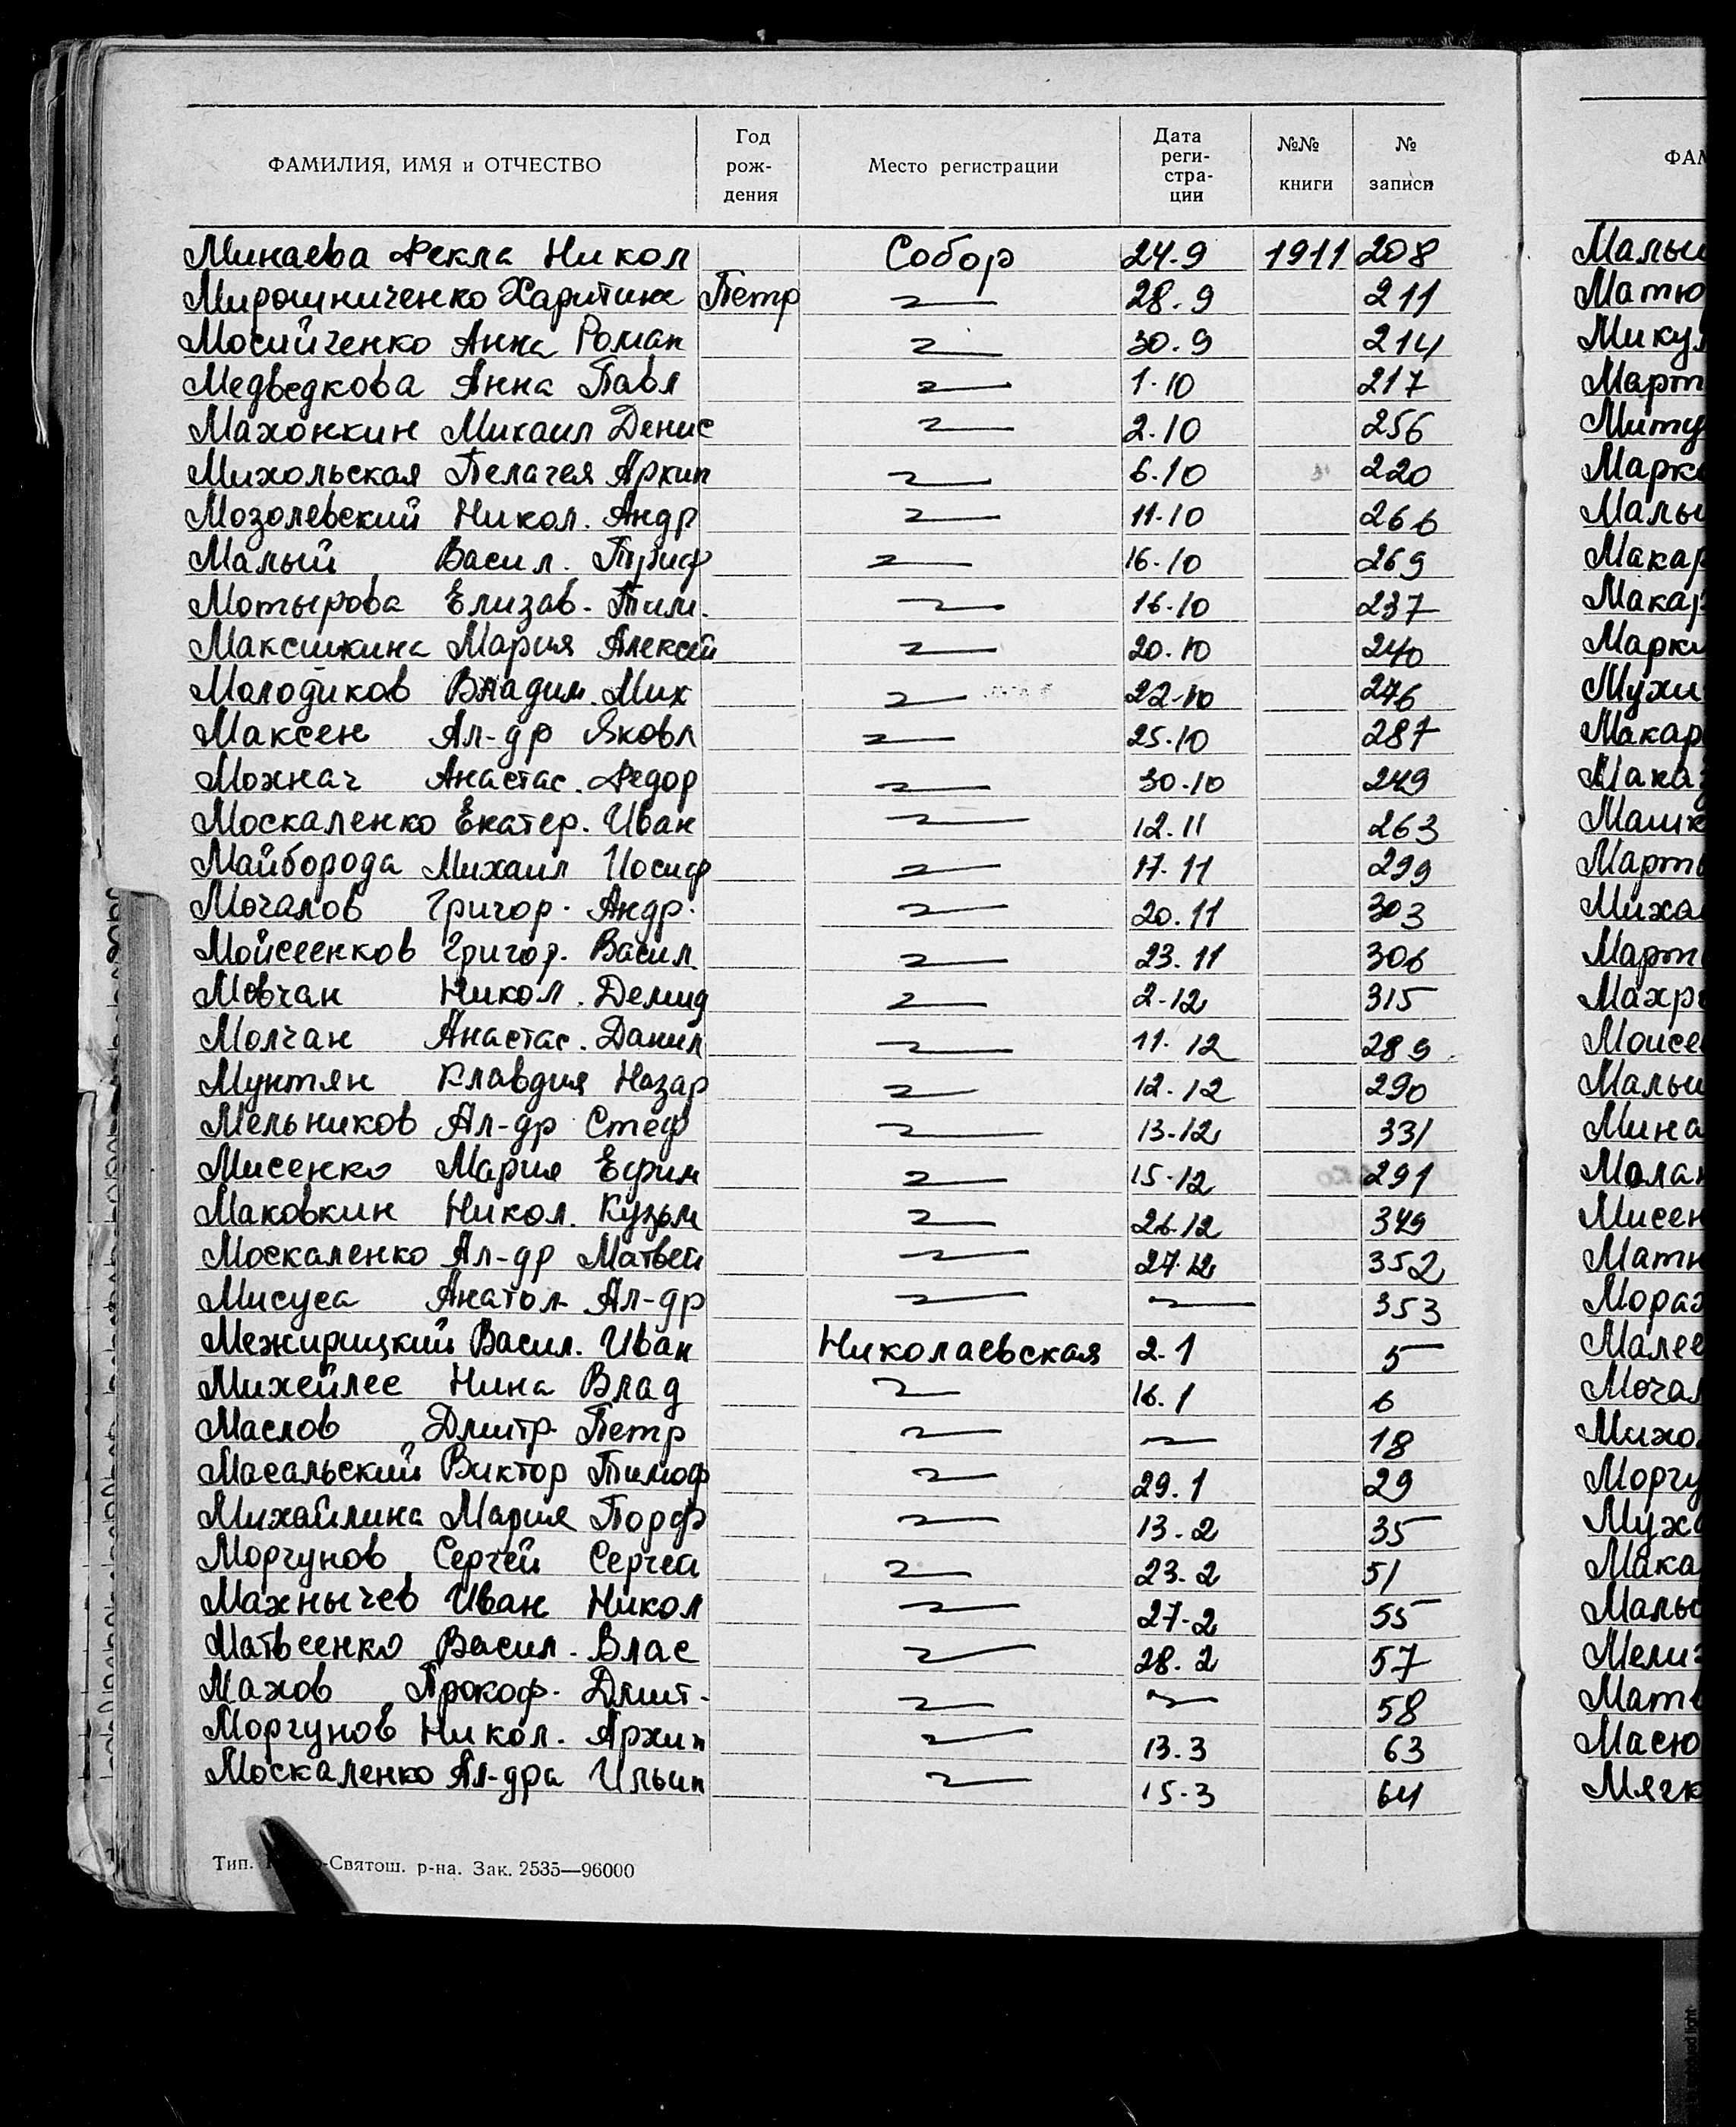 ФАМИЛИЯ, ИМЯ и ОТЧЕСТВО Год рож- дения Место регистрации Дата реги- стра- ции №№ книги № записи
Минаева Фекла Никол Собор 24.9 1911 208
Мирошниченко Харитина Петр 〃 28.9 211
Мосийченко Анна Роман 〃 30.9 214
Медведкова Анна Павл 〃 1.10 217
Махонкин Михаил Денис 〃 2.10 256
Михольская Пелагея Архип 〃 6.10 220
Мозолевский Никол. Андр 〃 11.10 266
Малый Васил. 〃 16.10 269
Мотырова Елизав. Тим. 〃 16.10 237
Максимкина Мария Алексей 〃 20.10 240
Молодиков Владим. Мих 〃 22.10 276
Максен Ал-др Яковл 〃 25.10 287
Мохнач Анастас. Федор 〃 30.10 249
Москаленко Екатер. Иван 〃 12.11 263
Майборода Михаил Иосиф 〃 17.11 299
Мочалов Григор. Андр. 〃 20.11 303
Мойсеенков Григор. Васил 〃 23.11 306
Мовчан Никол. Демид 〃 2.12 315
Молчан Анастас. Данил 〃 11.12 289
Мунтян Клавдия Назар 〃 12.12 290
Мельников Ал-др Стеф 〃 13.12 331
Мисенко Мария Ефим 〃 15.12 291
Маковкин Никол. Кузьм 〃 26.12 349
Москаленко Ал-др Матвей 〃 27.12 352
Мисуса Анатол. Ал-др 〃 〃 353
Межирицкий Васил. Иван Николаевская 2.1 5
Михейлес Нина Влад 〃 16.1 6
Маслов Дмитр. Петр 〃 〃 18
Масальский Виктор Тимоф 〃 29.1 29
Михайлина Мария Порф 〃 13.2 35
Моргунов Сергей Сергей 〃 23.2 51
Махнычев Иван Никол 〃 27.2 55
Матвеенко Васил. Влас 〃 28.2 57
Махов Прокоф. Дмит. 〃 〃 58
Моргунов Никол. Архип 〃 13.3 63
Москаленко Ал-дра Ильин 〃 15.3 64
Тип. -Святош. р-на. Зак. 2535—96000
ФАМ
Малыш
Матю
Микул
Март
Миту
Марк
Малы
Макар
Макар
Марки
Мухи
Макар
Мака
Машк
Март
Миха
Март
Махр
Моисе
Малы
Мина
Молан
Мисен
Матн
Мораз
Малее
Мочал
Михо
Моргу
Мухо
Мака
Маль
Мели
Матв
Масю
Мягк